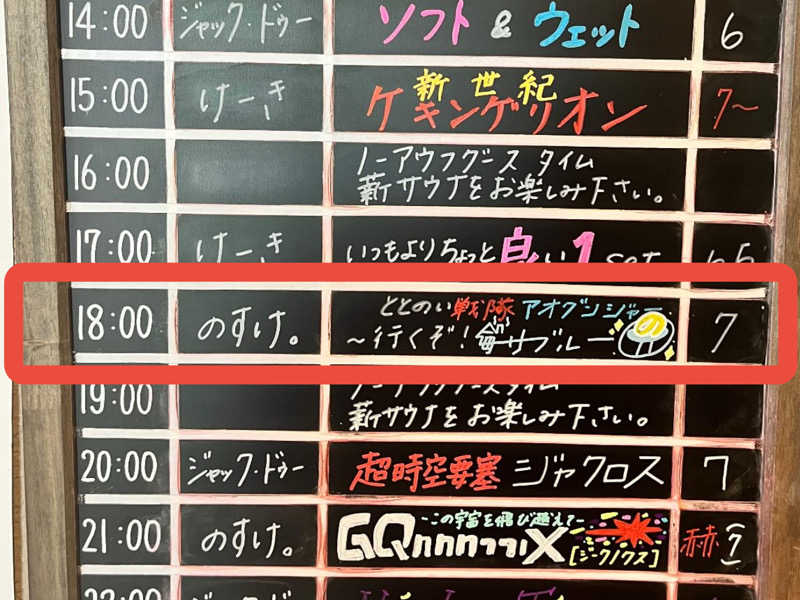 14:00 ジャック・ドゥー ソフト & ウェット 6
15:00 けーき 新世紀
ケーキングリオン 7〜
16:00 ノーアウフグースタイム
薪サウナをお楽しみ下さい。
17:00 けーき いつもよりちょっと良い1set
18:00 のすけ。 ととのい戦隊アオグンジャー
〜行くぞ! サブルー の 7
19:00 ノーアウフグースタイム
薪サウナをお楽しみ下さい。
20:00 ジャック・ドゥー 超時空要塞 ジャクロス 7
21:00 のすけ。 〜この宇宙を飛び越えて〜
GQnnnフフィX [ジークノクス] 赫 7